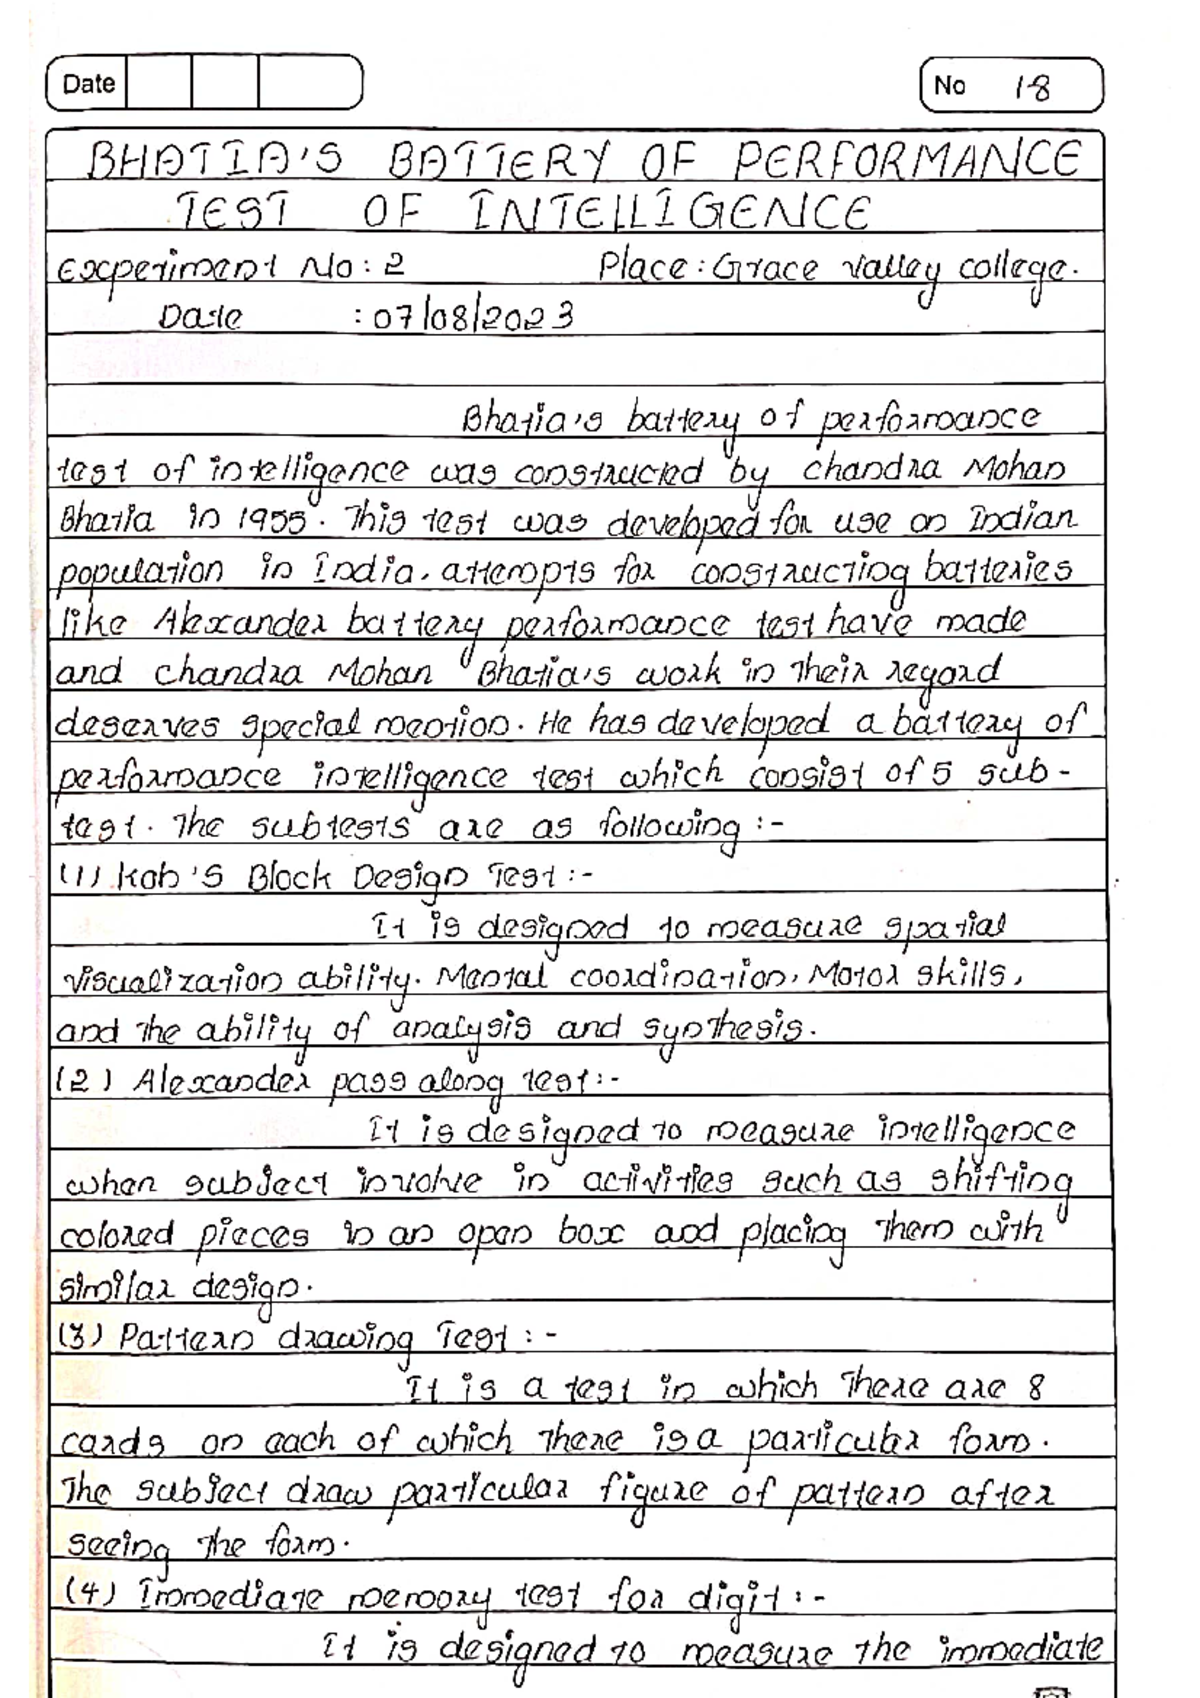 Date
No 18
BHATIA'S BATTERY OF PERFORMANCE
TEST OF INTELLIGENCE
Experiment No: 2 Place: Grace Valley college.
Date : 07/08/2023
Bhatia's battery of performance
test of intelligence was constructed by chandra Mohan
Bhatia in 1955. This test was developed for use on Indian
population in India. attempts for constructing batteries
like Alexander battery performance test have made
and chandra Mohan Bhatia's work in their regard
deserves special mention. He has developed a battery of
performance intelligence test which consist of 5 sub-
test. The subtests are as following :-
(1) Koh's Block Design Test :-
It is designed to measure spatial
visualization ability. Mental coordination, Motor skills,
and the ability of analysis and synthesis.
(2) Alexander pass along test:-
It is designed to measure intelligence
when subject involve in activities such as shifting
colored pieces in an open box and placing them with
similar design.
(3) Pattern drawing Test :-
It is a test in which there are 8
cards on each of which there is a particular form.
The subject draw particular figure of pattern after
seeing the form.
(4) Immediate memory test for digit :-
It is designed to measure the immediate